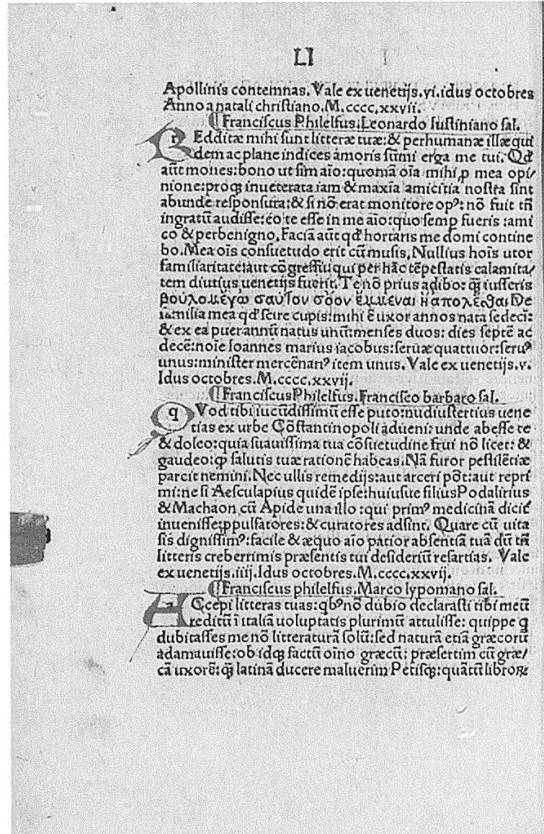 LI
Apollinis contemnas. Vale ex uenetijs. vi. idus octobres
Anno a natali christiano. M. cccc. xxvii.
¶ Franciscus Philelfus. Leonardo Iustiniano sal.
REdditæ mihi sunt litteræ tuæ: & perhumanæ illæ qui
dem ac plane indices amoris sūmi erga me tui. Qd'
aūt mones: bono ut sim aīo: quoniā oīa mihi p mea opi/
nione: proq; inueterata iam & maxīa amicitia nostra sint
abunde responsura: & si nō erat monitore opꝰ: nō fuit tn̄
ingratū audisse: eo te esse in me aīo: quo semp fueris: ami
co & perbenigno. Faciā aūt qd' hortaris me domi contine
bo. Mea oīs consuetudo erit cū musis. Nullius hoīs utor
familiaritate: aut cōgressu: qui per hāc tēpestatis calamita/
tem diutius uenetijs fuerit. Te nō prius adibo: q̄ iusseris
βούλομ' ἐγὼ σαῦτον σόον ἔμμεναι ἢ ἀπολέσθαι De
familia mea qd' scire cupis: mihi ē uxor annos nata sedecī:
& ex ea puer annū natus unū: menses duos: dies septē ac
decē: noīe Ioannes marius iacobus: seruæ quattuor: seruꝰ
unus: minister mercēnariꝰ item unus. Vale ex uenetijs. v.
Idus octobres. M. cccc. xxvij.
¶ Franciscus Philelfus. Francisco barbaro sal.
QVod tibi iucūdissimū esse puto: nudiustertius uene
tias ex urbe Cōstantinopoli adueni: unde abesse te
& doleo: quia suauissima tua cōsuetudine frui nō licet: &
gaudeo: q̄ salutis tuæ rationē habeas. Nā furor pestilētiæ
parcit nemini. Nec ullis remedijs: aut arceri pōt: aut repri
mi: ne si Aesculapius quidē ipse: huiusue filius Podalirius
& Machaon cū Apide una illo: qui primꝰ medicinā dicit̄
inuenisse: ip̄ pulsatores: & curatores adsint. Quare cū uita
sis dignissimꝰ: facile & æquo aīo patior absentiā tuā dū tn̄
litteris creberrimis præsentis tui desideriū resartias. Vale
ex uenetijs. iiij. Idus octobres. M. cccc. xxvij.
¶ Franciscus philelfus. Marco lypomano sal.
ACcepi litteras tuas: qbꝰ nō dubio declarasti tibi meū
reditū ī italiā uoluptatis plurimū attulisse: quippe q
dubitasses me nō litteraturā solū: sed naturā etiā græcorū
adamauisse: ob idq; factū oīno græcū: præsertim cū græ/
cā uxorē: q̄ latinā ducere maluerim Petisq;: quātū libroꝝ